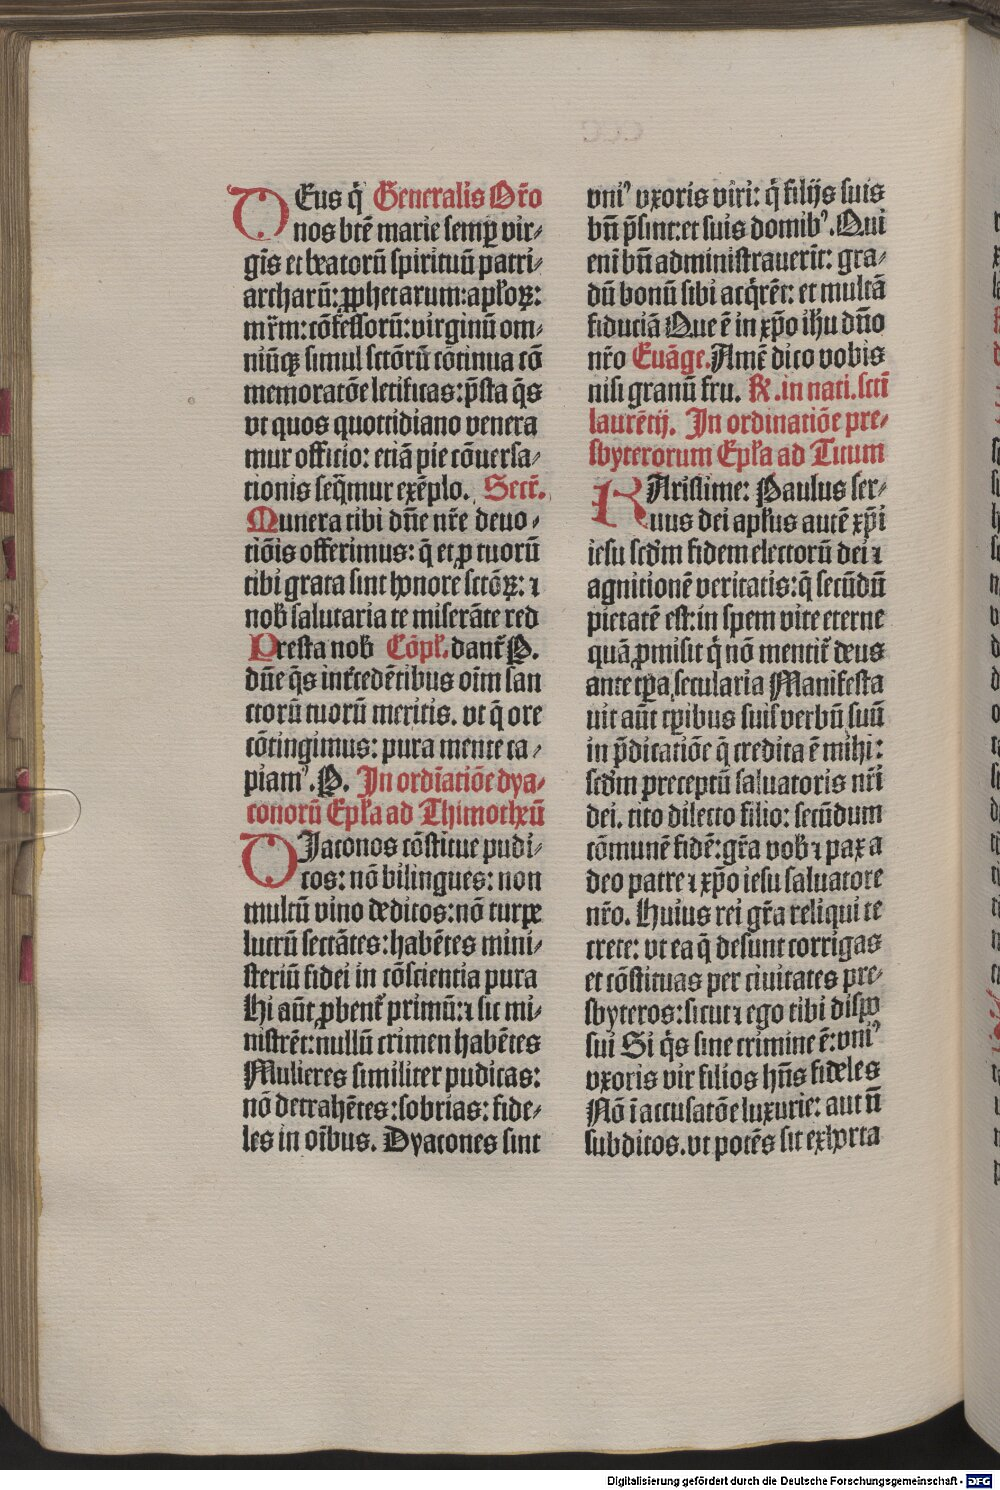 DEus q̄ Generalis Or̄o
nos btē marie semꝑ vir⸗
gīs et beatorū spirituū patri⸗
archarū: ꝓphetarum: apl̄oꝝ:
mr̄m: cōfessorū: virginū om⸗
niūqꝫ simul sctōrū cōtinua cō
memoratōe letificas: p̄sta q̄s
vt quos quottidiano venera
mur officio: etiā pie cōuersa⸗
tionis seq̄mur exēplo. Secr̄.
Munera tibi dn̄e nr̄e deuo⸗
tiōis offerimus: q̄ et ꝓ tuorū
tibi grata sint honore sctōꝝ: ⁊
nob̄ salutaria te miserāte red
Presta nob̄ Cōpl̄. dant̄ P.
dn̄e q̄s int̄cedētibus oīm san
ctorū tuorū meritis. vt q̄ ore
cōtingimus: pura mente ca⸗
piamꝰ. P. In ordīatiōe dya⸗
conorū Epl̄a ad Thimotheū
DIaconos cōstitue pudi⸗
cos: nō bilingues: non
multū vino deditos: nō turpe
lucrū sectātes: habētes mini⸗
steriū fidei in cōscientia pura
Hi aūt ꝓbent̄ primū: ⁊ sic mi⸗
nistrēt: nullū crimen habētes
Mulieres similiter pudicas:
nō detrahētes: sobrias: fide⸗
les in oībus. Dyacones sint
vniꝰ vxoris viri: q̄ filijs suis
bn̄ p̄sint: et suis domibꝰ. Qui
eni bn̄ administrauerīt: gra⸗
dū bonū sibi acq̄rēt: et multā
fiduciā Que ē in xp̄o ih̄u dn̄o
nr̄o Euāge. Amē dico vobis
nisi granū fru. R̄. in nati. scti
laurētij. In ordinatiōe pre⸗
sbyterorum Epl̄a ad Tituum
KArissime: Paulus ser⸗
uus dei apl̄us autē xp̄i
iesu scd̄m fidem electorū dei ⁊
agnitionē veritatis: q̄ secūdū
pietatē est: in spem vite eterne
quā ꝓmisit q̄ nō mentit̄ deus
ante tp̄a secularia Manifesta
uit aūt tp̄ibus suis verbū suū
in p̄dicatiōe q̄ credita ē mihi:
scd̄m preceptū saluatoris nr̄i
dei. tito dilecto filio: secūdum
cōmunē fidē: gr̄a vob̄ ⁊ pax a
deo patre ⁊ xp̄o iesu saluatore
nr̄o. Huius rei gr̄a reliqui te
crete: vt ea q̄ desunt corrigas
et cōstituas per ciuitates pre⸗
sbyteros: sicut ⁊ ego tibi dispo
sui Si q̄s sine crimine ē: vniꝰ
vxoris vir filios hn̄s fideles
Nō ī accusatōe luxurie: aut n̄
subditos. vt potēs sit exhorta
Digitalisierung gefördert durch die Deutsche Forschungsgemeinschaft - DFG